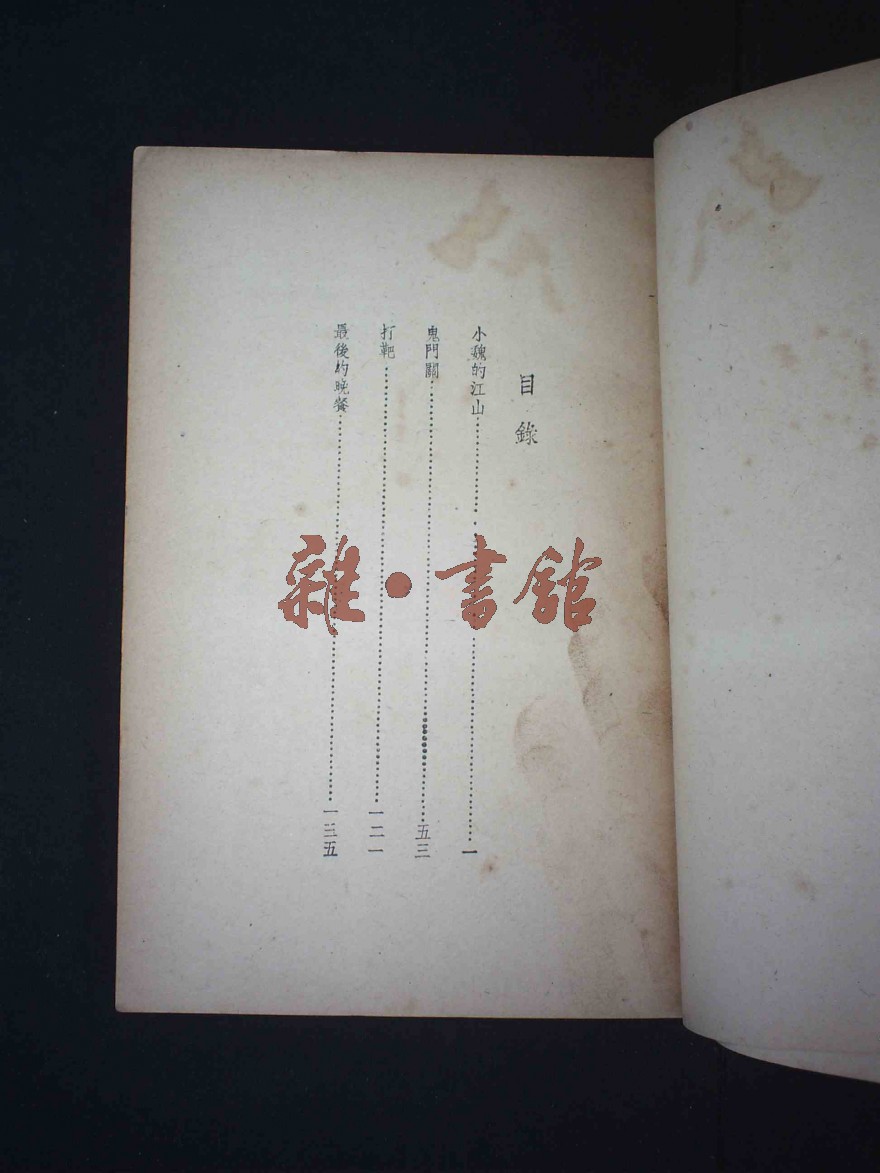 目錄
小魏的江山……一
鬼門關……五三
打靶……一二一
最後的晚餐……一三五
雜·書館